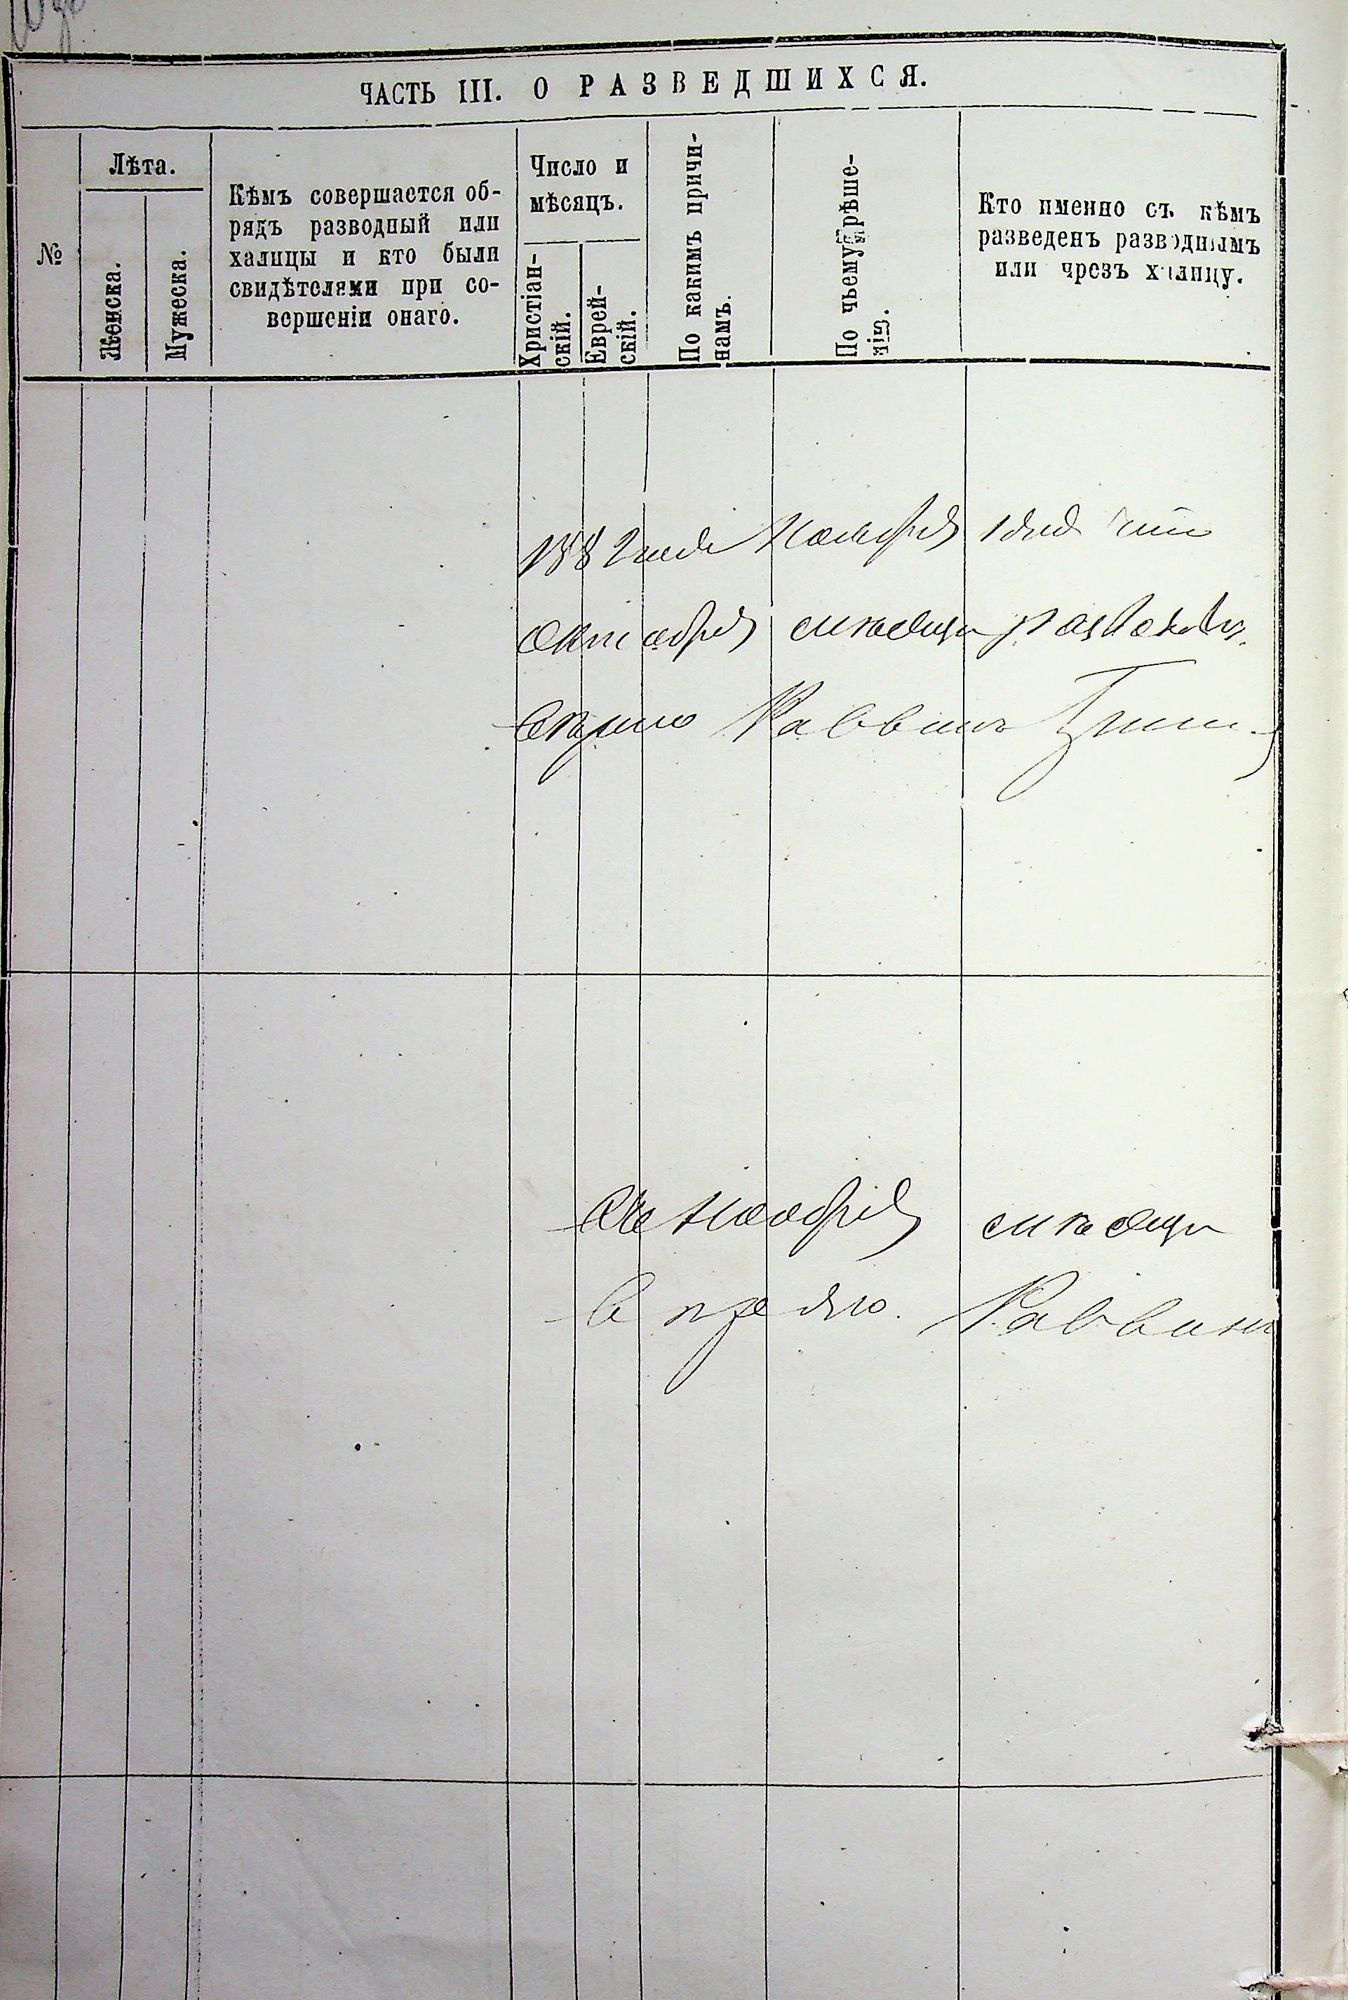 ЧАСТЬ III. О РАЗВЕДШИХСЯ.
№
Лѣта.
Женска.
Мужеска.
Кѣмъ совершается об-
рядъ разводный или
халицы и кто были
свидѣтелями при со-
вершеніи онаго.
Число и
мѣсяцъ.
Христіан-
скій.
Еврей-
скій.
По какимъ причи-
намъ.
По чьему рѣше-
нію.
Кто именно съ кѣмъ
разведенъ разводнымъ
или чрезъ халицу.
1882 года Ноября 1 дня
Октября мѣсяца
Раввинъ
Ноября мѣсяца
Раввинъ